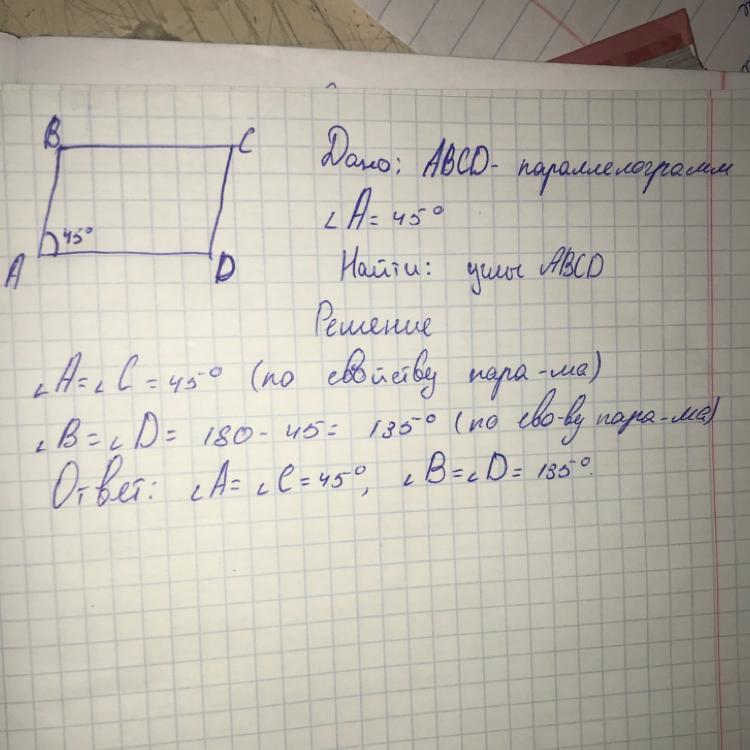 B C
45°
A D
Дано: ABCD - параллелограмм
∠A = 45°
Найти: углы ABCD
Решение
∠A = ∠C = 45° (по свойству пара-ма)
∠B = ∠D = 180 - 45 = 135° (по сво-ву пара-ма)
Ответ: ∠A = ∠C = 45°, ∠B = ∠D = 135°.